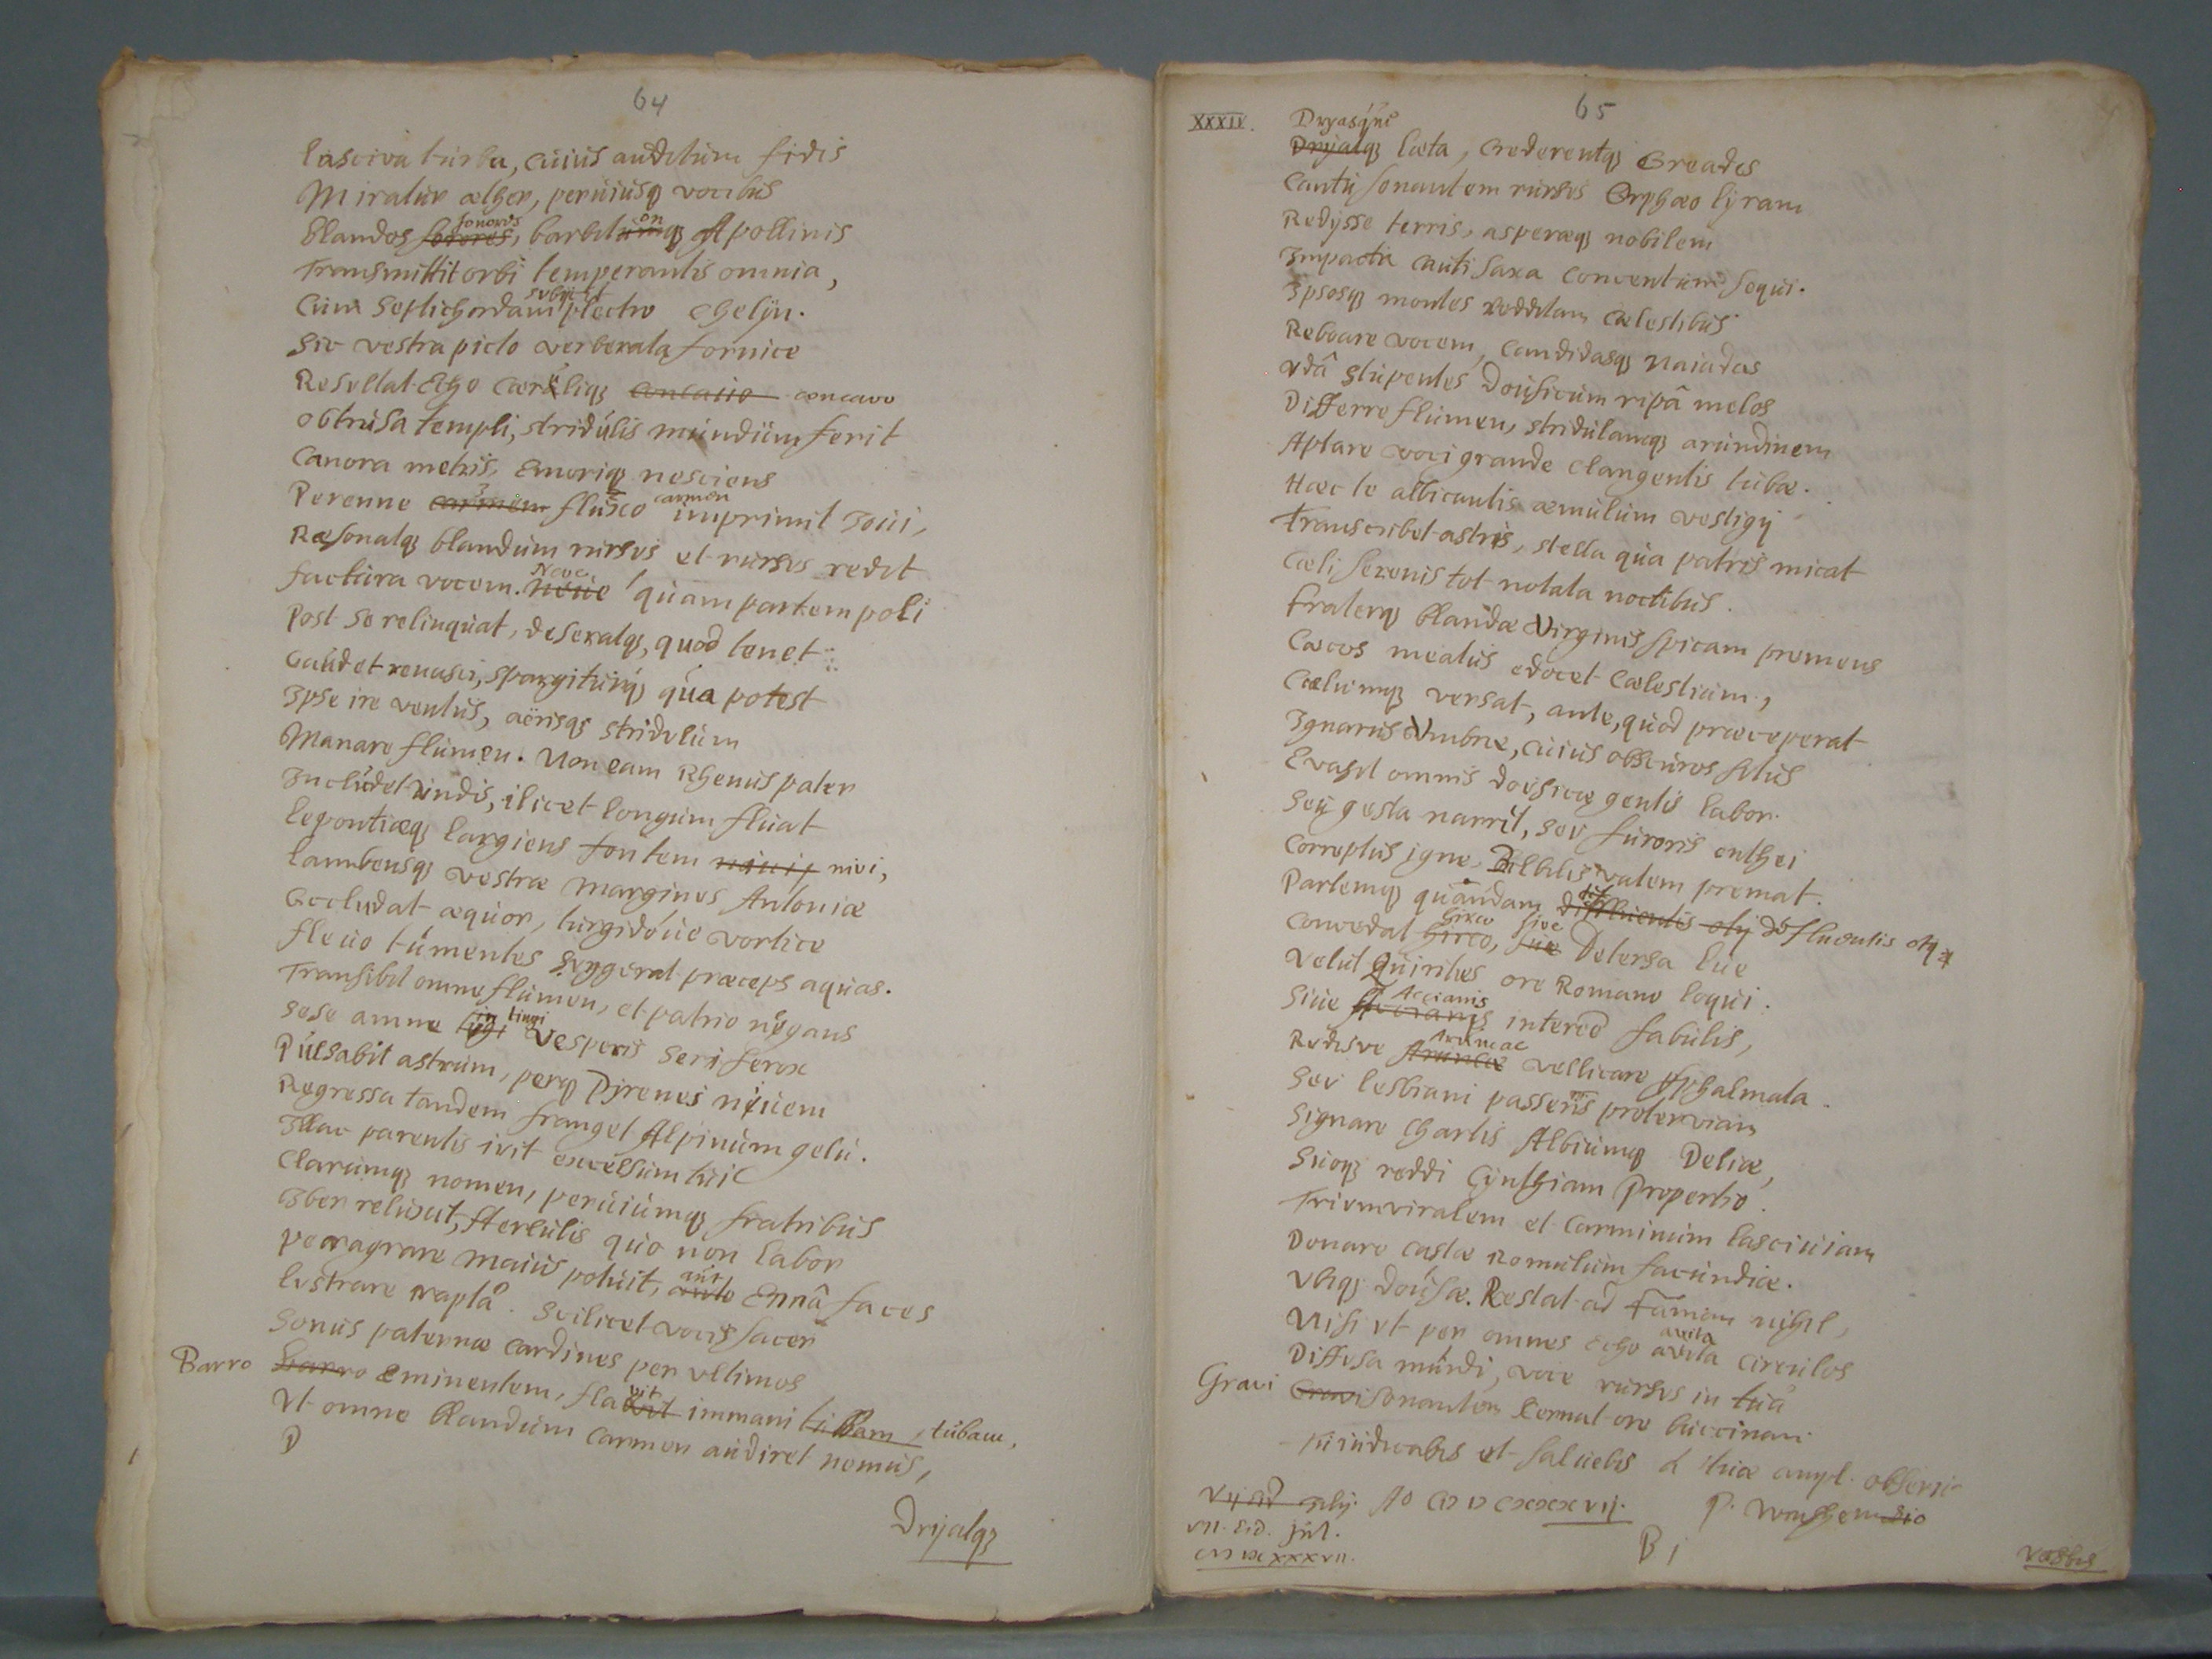 64
lasciva turba, cuius auditum fidis
Miratur æther, perviusq vocibus
blandos sorores sonoros, barbitumq on Apollinis
Transmittit orbi temperantis omnia,
Cum septichordam subijcit plectro chelyn.
Sic vestra picto verberata fornice
Resultat Echo cæruliq concavo concavo
obtrusa templi, stridulis mundum ferit
Canora metris, Emoriq nesciens
Perenne carmen flusco carmen imprimit Joui,
Resonatq blandum rursus et rursus redit
factura vocem. neue Neve quam partem poli
Post se relinquat, deseratq, quod tenet
Gaudet renasci, spargiturq qua potest
Ipse ire ventus, aërisq stridulum
Manare flumen. Non eam Rhenus pater
Includet undis, ilicet longum fluat
lepontiæq largiens fontem nivi,
lambensq vestræ margines Antoniæ
Occludat æquor, turgidóue vortice
flevo tumentes suggerat præceps aquas.
Transibit omne flumen, et patrio negans
Sese amne tingi in tingi Vesperis seri ferox
Pulsabit astrum, perq Pyrenes nivem
Regressa tandem franget Alpinum gelu.
Illac parentis ivit excelsum tui
Clarumq nomen, perviumq fratribus
Iber reluxit, Herculis quo non labor
peragrare maius potuit, aut Ennâ faces
lustrare raptâ. Scilicet vocis sacer
Sonus paternæ cardines per ultimos
Barro Barro eminentem, flavit vit immani tubam, tubam,
Vt omne blandum carmen audiret nemus,
D
Dryalq
65
XXXIV. Dryasque
Dryalq læta, crederentq Oreades
Cantu sonantem rursus Orphæo lyram
Redijsse terris, asperæq nobilem
Impacta cauti saxa concentum sequi.
Ipsosq montes redditam cælestibus
Reboare vocem, candidasq Naiadas
Vdâ stupentes dousicum ripâ melos
Differre flumen, stridulamq arundinem
Aptare voci grande clangentis tubæ.
Hæc te albicantis æmulum vestigij
Transcribet astris, stella qua patris micat
Cæli serenis tot notata noctibus.
fraterq blandæ Virginis spicam premens
Cæcos meatus edocet Cælestium,
Cælumq versat, ante, quod præceperat
Ignarus Umbræ, cuius obscuros situs
Evasit omnis dousicæ gentis labor.
Seu gesta narrit, seu furoris enthei
Correptus igne, Bilbilis vatem premat.
Partemq quandam diffluentis otij defluentis otij
Concedat hirco hirco, siue sive Detersa lue
Velut Quirites ore Romano loqui.
Siue Accianis Accianis interco fabulis,
Rudisve Aruncæ Aruncae vellicare sphalmata.
Seu lesbiani passeris proterviam
Signare chartis Albiumq Deliæ,
Suoq reddi Cynthiam Propertio.
Triumviralem et carminum lasciuiam
Donare castæ Romulum facundiæ.
Vbiq dousæ. Restat ad famam nihil,
Nisi vt per omnes echo avita avita circulos
Diffusa mundi, voce rursus in tuâ
Gravi Gravisonantem cernat ore buccinam
et salvebis
Aº
VII. EID. Jul.
B j